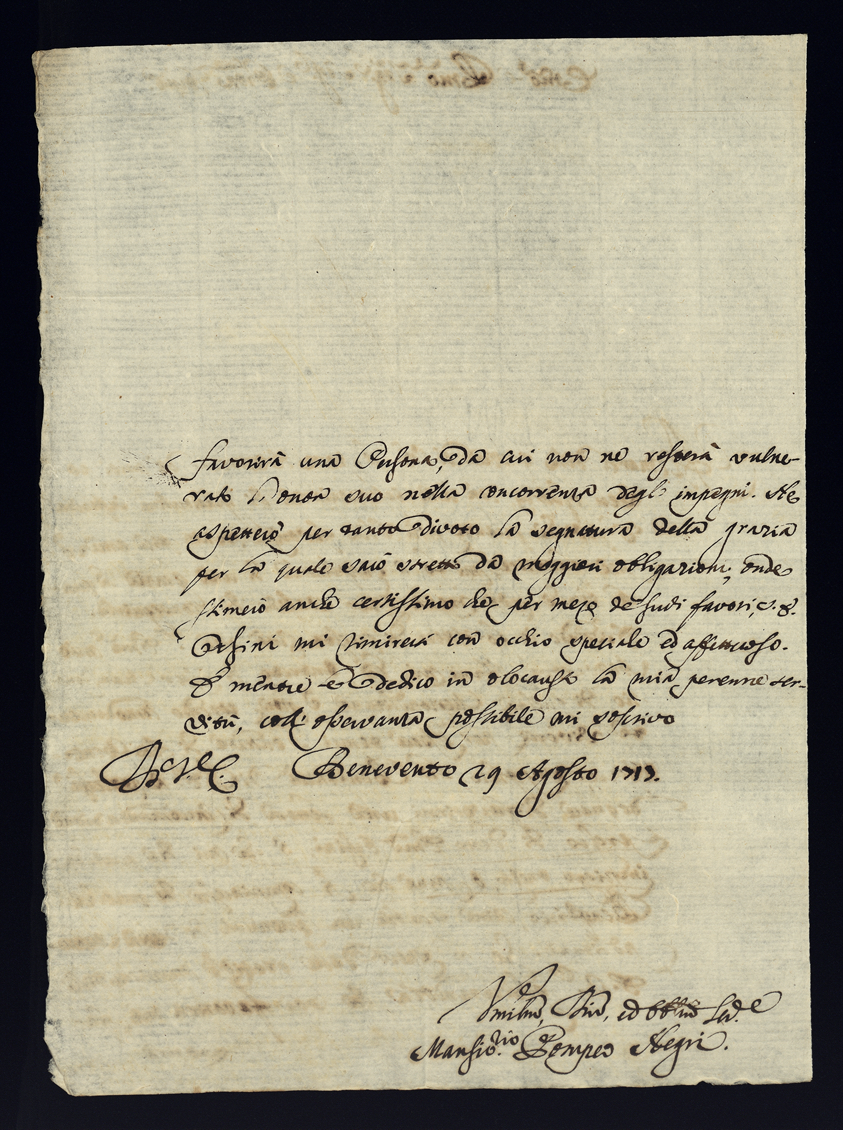 favorirà una Persona, da cui non ne resterà vulne-
rato l'honor suo nella concorrenza degl' impegni. Ne
aspetterò per tanto divoto la segnatura della grazia
per la quale sarò stretto da maggiori obligazioni, onde
stimerò anche certissimo che per mezo de suoi favori,
mi rimirerà con occhio speciale ed affettuoso.
E mentre dedico in olocausto la mia perenne ser-
vitù, coll' osservanza possibile mi soscrivo
Benevento 29 Agosto 1713.
Mansio.rio Pompeo Negri.